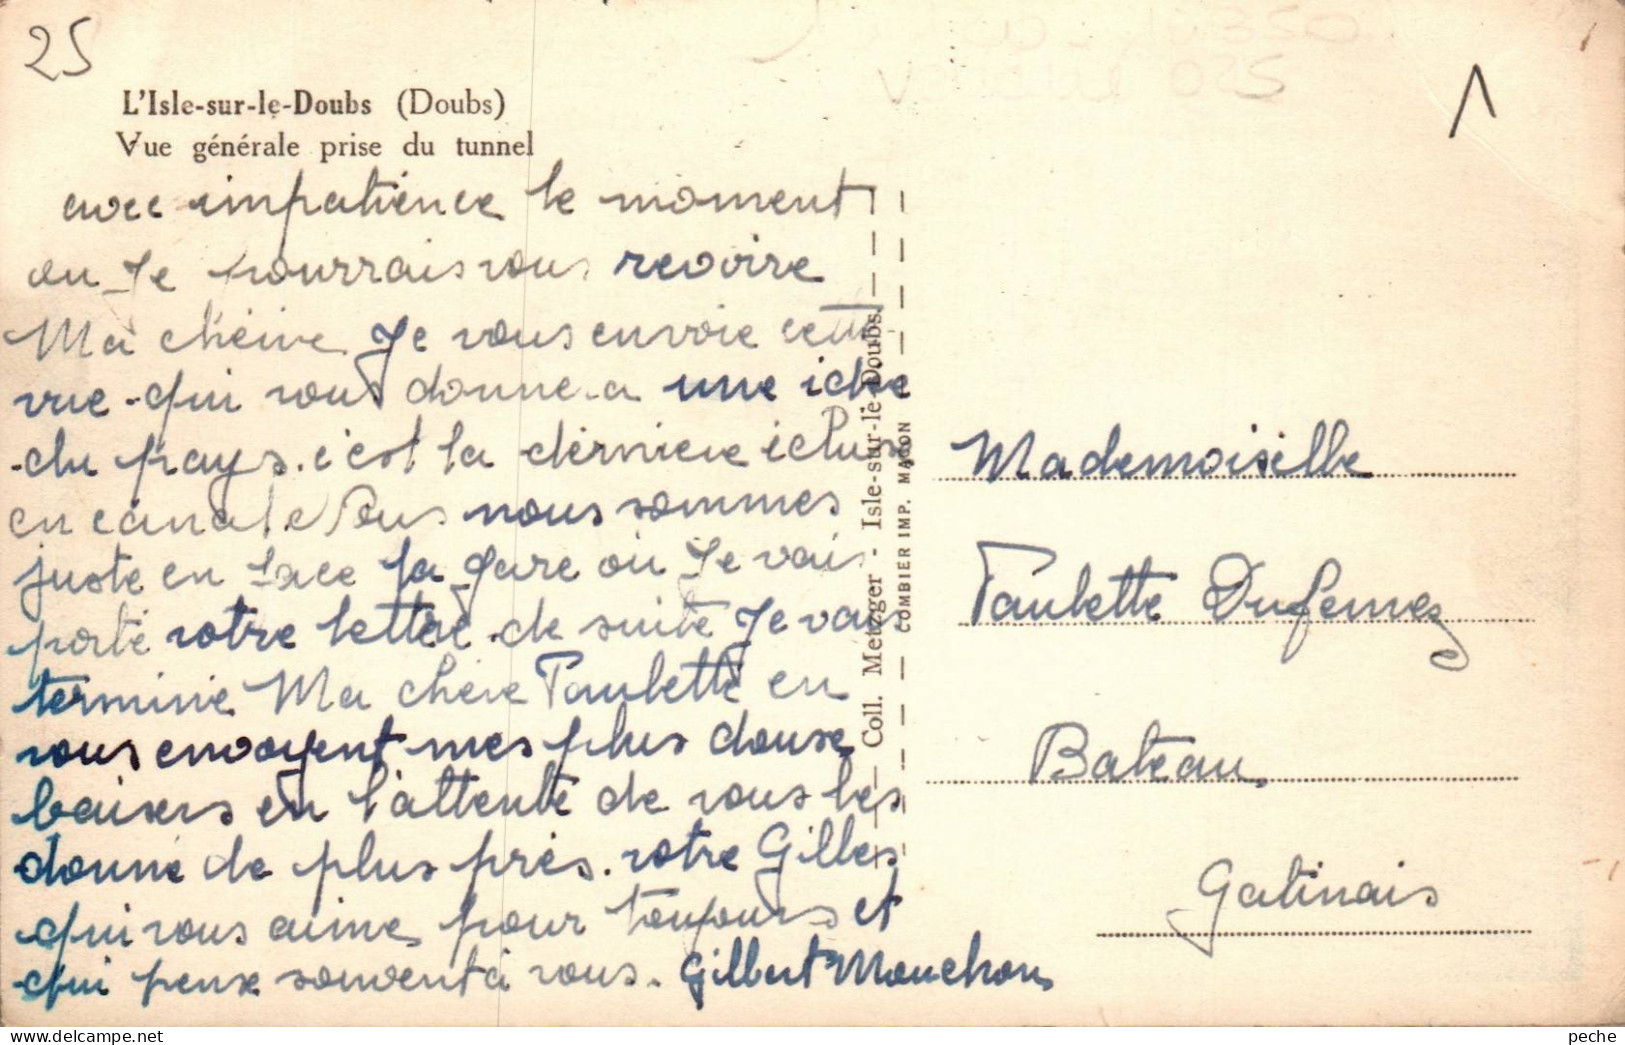 25
L'Isle-sur-le-Doubs (Doubs)
Vue générale prise du tunnel
avec impatience le moment
ou Je pourrais vous revoire
Ma chérie Je vous envoie cette
vue qui vous donnera une idée
du pays. c'est la dérniere écluse
en canal. Nous sommes
juste en face la gare où Je vais
porté votre lettre de suite Je vais
terminé Ma chère Paulette en
vous envoyent mes plus douxe
baisers en l'attente de vous les
donné de plus près. votre Gilles
qui vous aime pour toujours et
qui pense souvent à vous. Gilbert Mouchon
Coll. Metzger - Isle-sur-le-Doubs.
COMBIER IMP. MACON
Mademoiselle
Paulette Dufernez
Bateau
Gatinais
peche